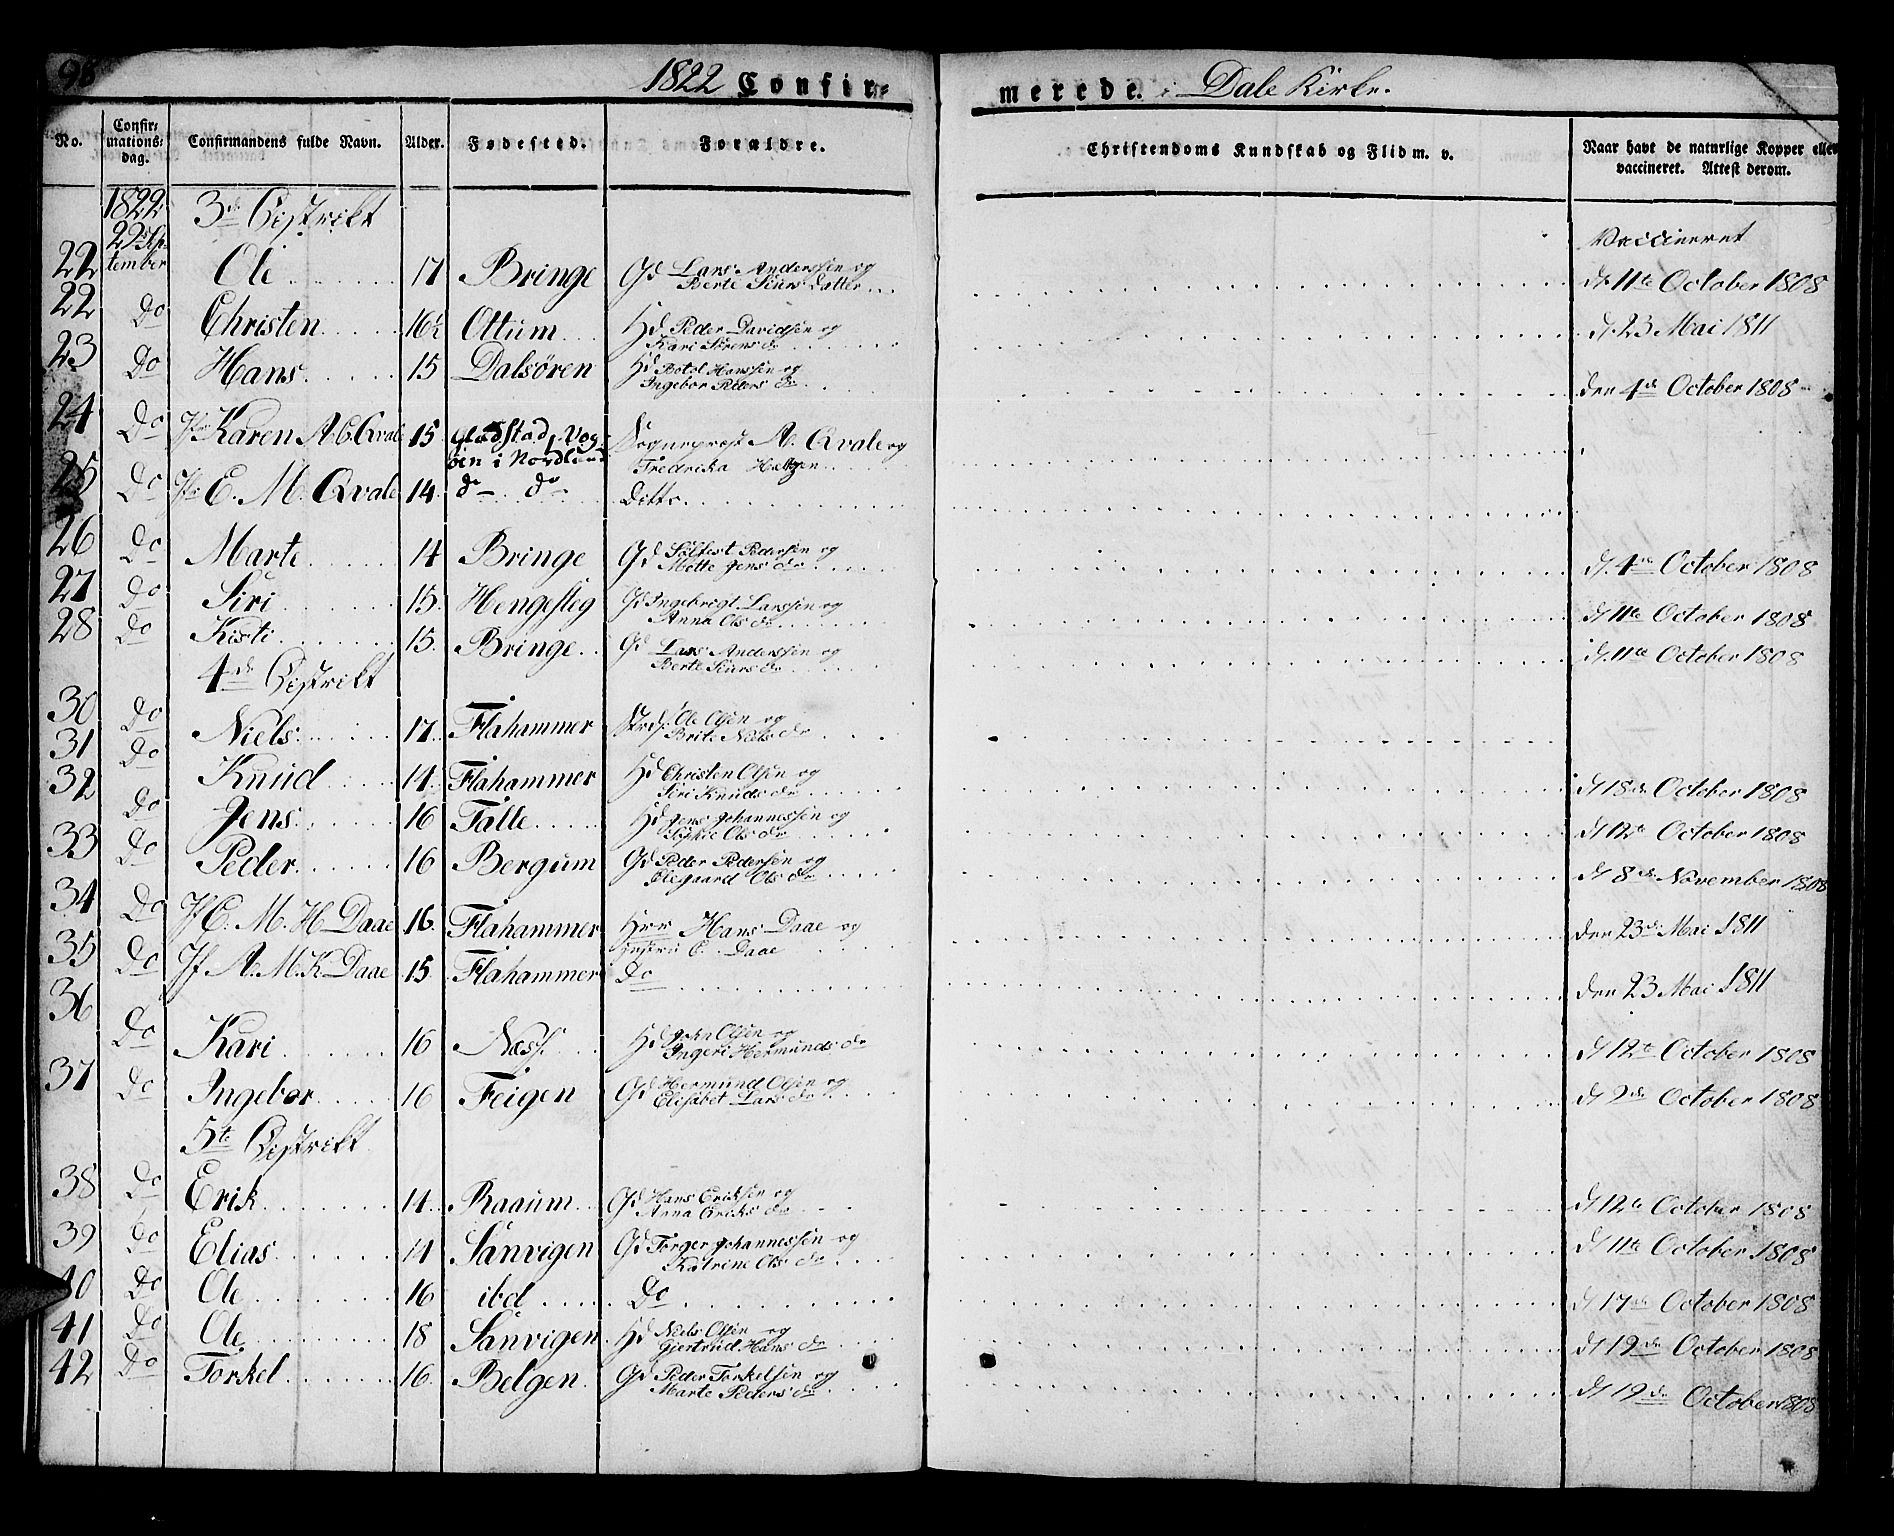 96
1822 Confir=
merede. i Dale Kirke.
No.
Confir=
mations=
dag.
Confirmandens fulde Navn.
Alder.
Fødested.
Forældre.
Christendoms Kundskab og Flid m. v.
Naar havt de naturlige Kopper eller
vaccineret. Attest derom.
1822
3de Distrikt
Vaccineret
22 29 Sep-
tember Ole 17 Bringe Gd Lars Anderssen og
Berte Siurs Datter d. 11te October 1808
22 Do Christen 16½ Ottum Hd Peder Davidsen og
Kari Sørens dr d. 23 Mai 1811
23 Do Hans 15 Dalsören Hd Botol Hanssen og
Ingebor Peders dr den 4de October 1808
24 Do Jfr Karen A. C. Qvale 15 Gladstad, Veg-
öen i Nordland Sogneprest A. Qvale og
Fredrika Heltzen
25 Do Jfr E. M. Qvale 14 do do Ditto
26 Do Marte 14 Bringe Gd Solfest Pedersen og
Mette Jens dr d. 4de October 1808
27 Do Siri 15 Hengesteg Gd Ingebrigt Larssen og
Anna Ols dr d 11te October 1808
28 Do Kisti 15 Bringe Gd Lars Anderssen og
Berte Siurs dr d. 11te October 1808
4de Distrikt
30 Do Niels 17 Flahammer Ole Olsen og
Brite Niels dr
31 Do Knud 14 Flahammer Hd Christen Olsen og
Siri Knuds dr d 18de October 1808
32 Do Jens 16 Talle Hd Jens Johannessen og
Ols dr d 12te October 1808
33 Do Peder 16 Bergum Gd Peder Pedersen og
Olegaard Ols dr d 8de November 1808
34 Do Jf C. M. H. Daae 16 Flahammer Herr Hans Daae og
Hustru C. Daae den 23de Mai 1811
35 Do Jf A. M. K. Daae 15 Flahammer Do den 23 Mai 1811
36 Do Kari 16 Næss Hd John Olsen og
Ingeri Hermunds dr d 12te October 1808
37 Do Ingebor 16 Feigen Gd Hermund Olsen og
Elisabet Lars dr d 2de October 1808
5te Distrikt
38 Do Erik 14 Raaum Gd Hans Eriksen og
Anna Eriks dr d 12te October 1808
39 Do Elias 14 Sanvigen Gd Torger Johannessen og
Katrine Ols dr d 11te October 1808
40 Do Ole 16 ibd Do d 17de October 1808
41 Do Ole 18 Sanvigen Hd Niels Olsen og
Giertrud Hans dr d 19de October 1808
42 Do Torkel 16 Belgen Gd Peder Torkelsen og
Marte Peders dr d 19de October 1808